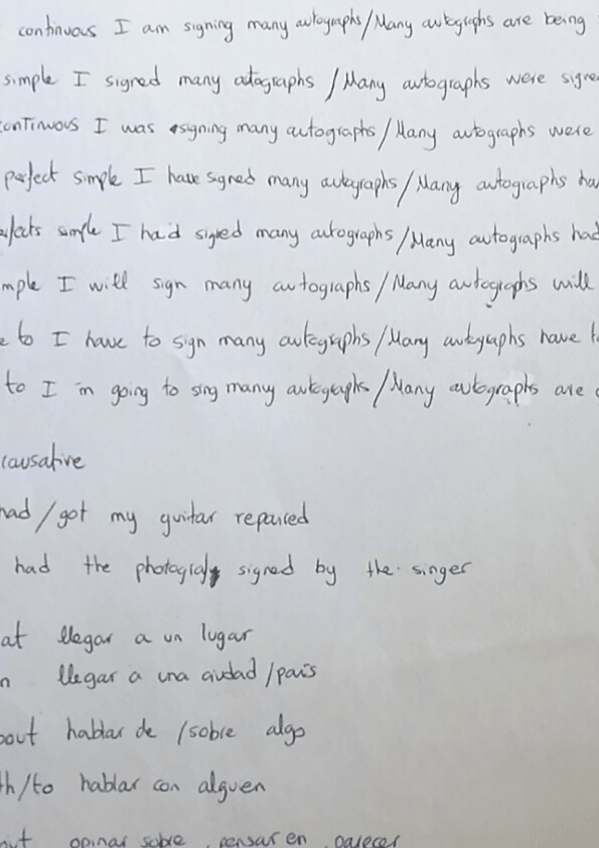 continuous I am signing many autographs/Many autographs are being
simple I signed many autographs /Many autographs were signe
continuous I was signing many autographs/Many autographs were
perfect simple I have signed many autographs/Many autographs ha
simple I had signed many autographs/Many autographs had
mple I will sign many autographs/Many autographs will
e to I have to sign many autographs/Many autographs have t
to I'm going to sing many autographs/Many autographs are
causative
had/got my guitar repaired
had the signed by the singer
at llegar a un lugar
n llegar a una ciudad/país
bout hablar de /sobre algo
th/to hablar con alguen
out opinar sobre, pensar en, parecer